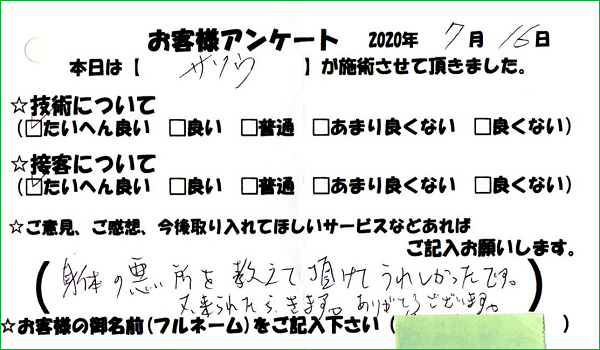 お客様アンケート 2020年 7月 16日
本日は【 サソウ 】が施術させて頂きました。
☆技術について
(☑たいへん良い □良い □普通 □あまり良くない □良くない)
☆接客について
(☑たいへん良い □良い □普通 □あまり良くない □良くない)
☆ご意見、ご感想、今後取り入れてほしいサービスなどあれば
ご記入お願いします。
(身体の悪い所を教えて頂けてうれしかったです。
又来られたらきます。ありがとうございます。)
☆お客様の御名前(フルネーム)をご記入下さい( )